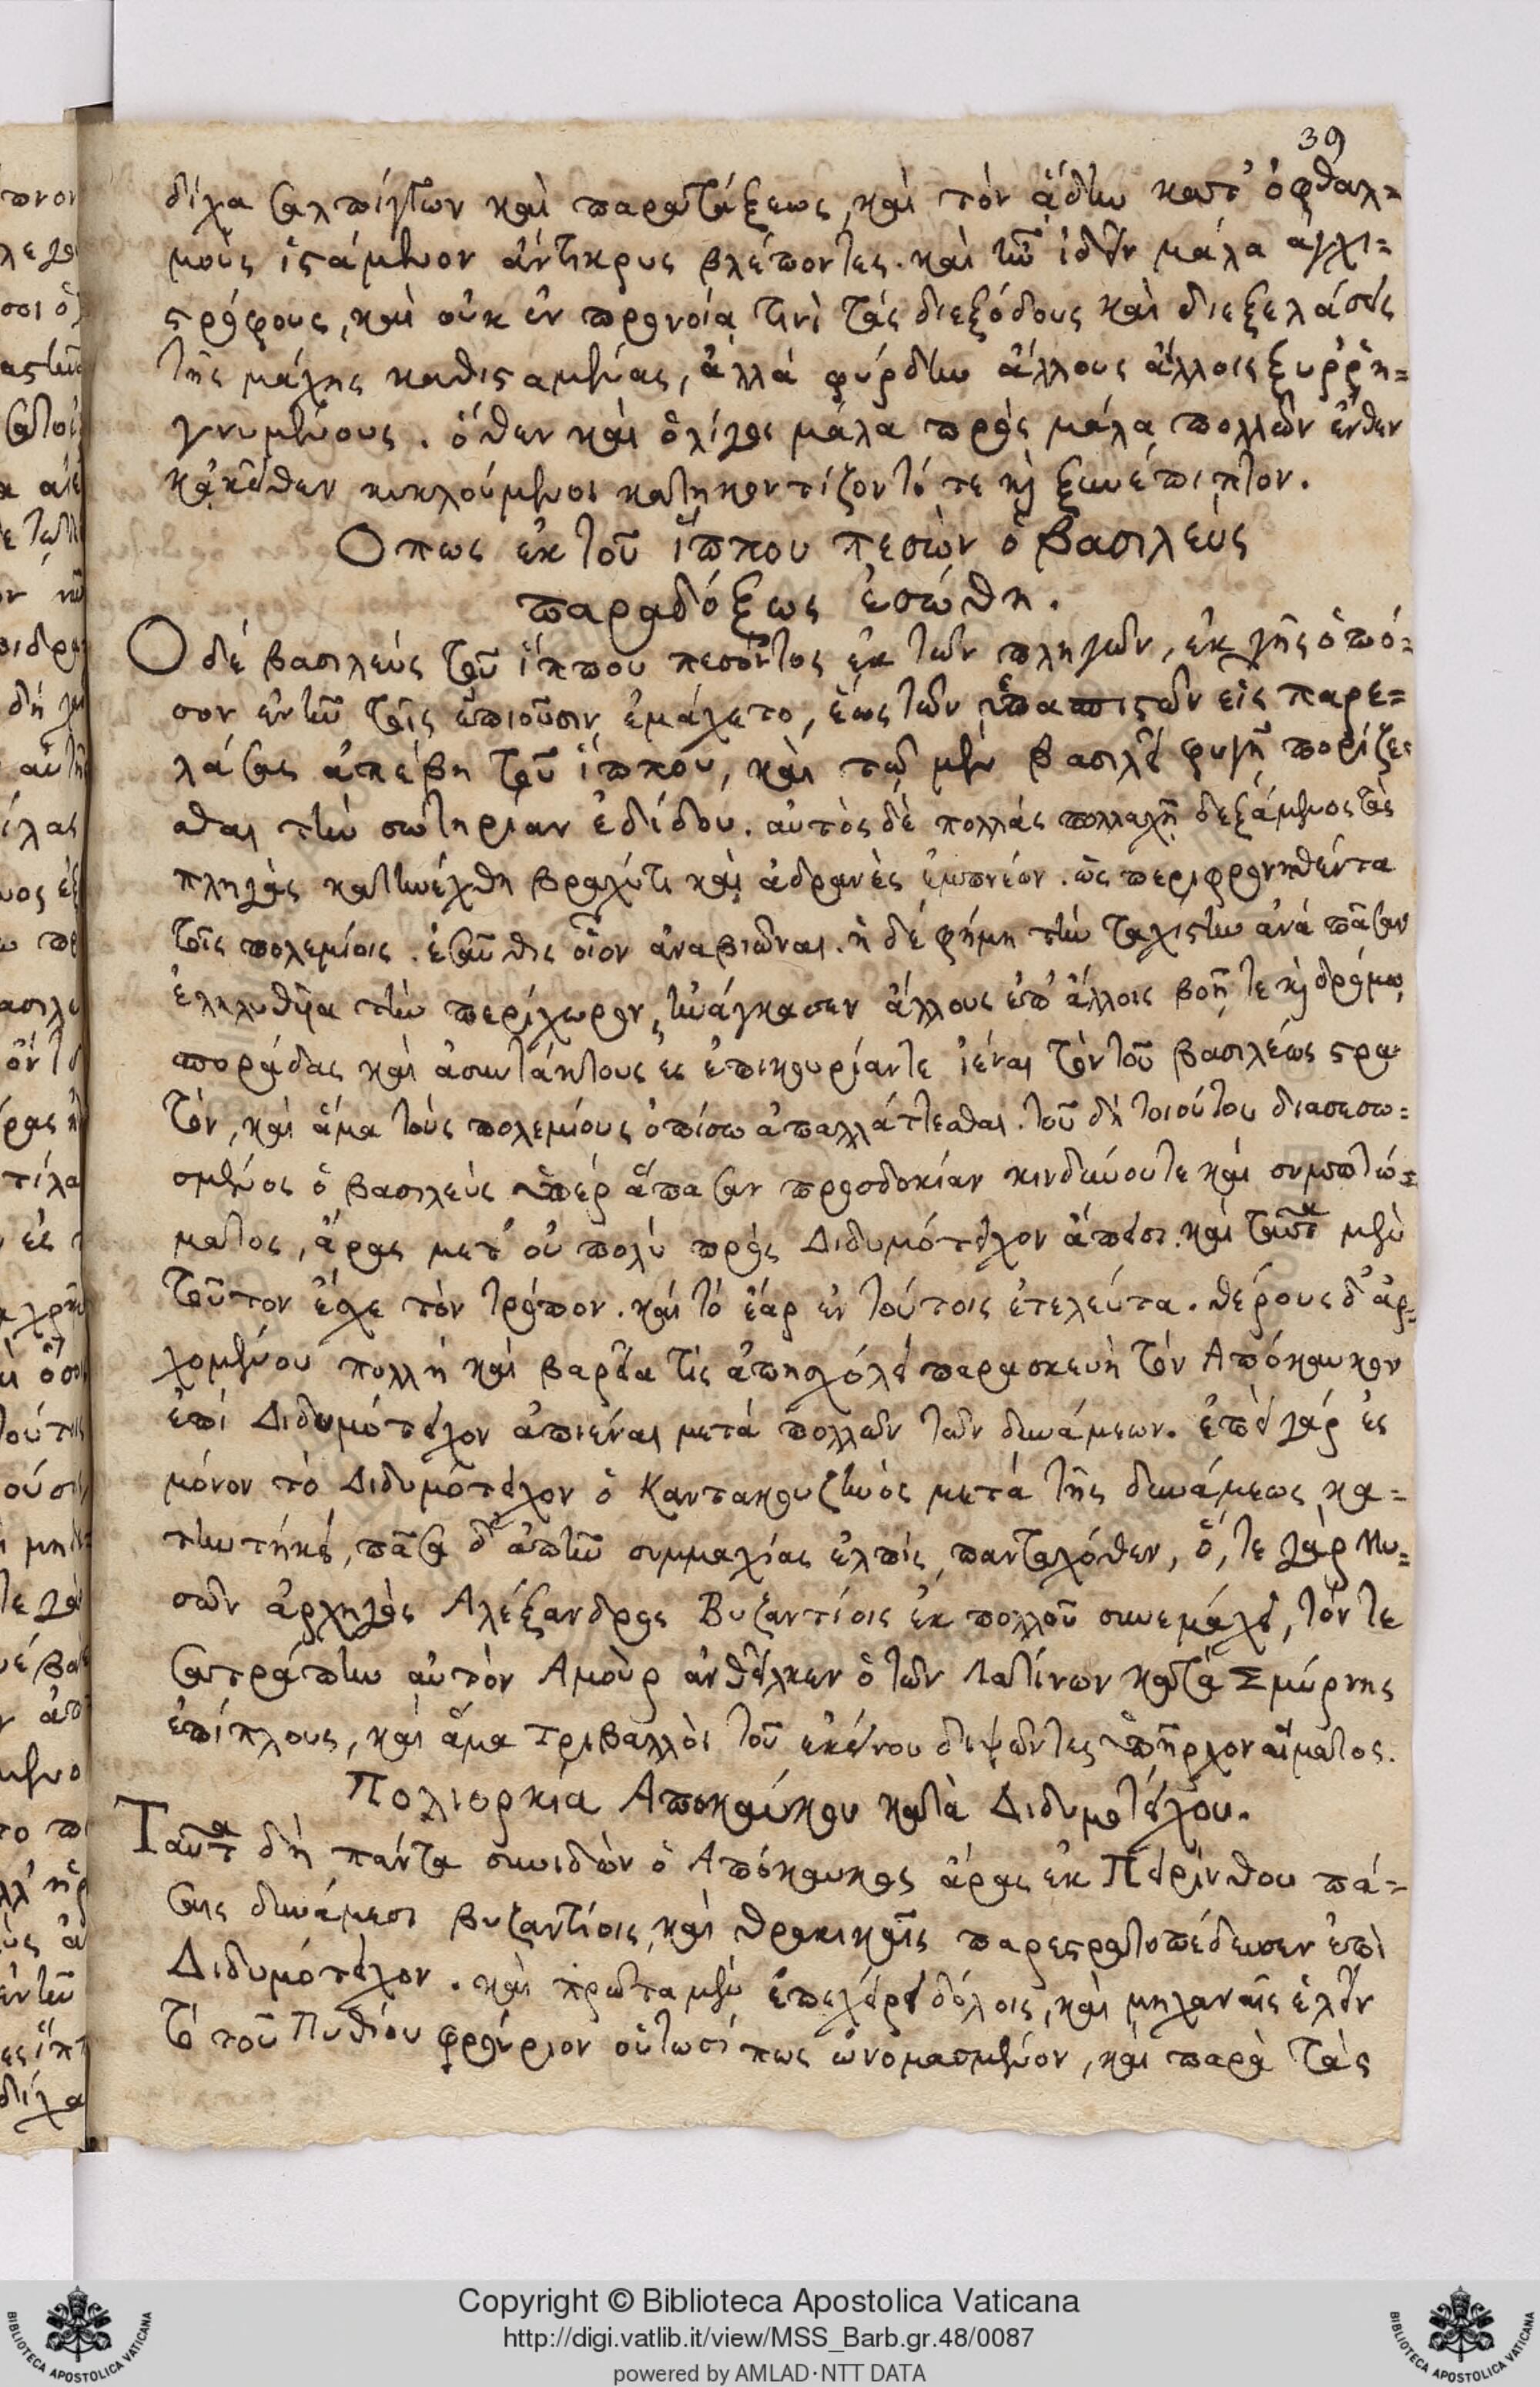 39
δίχα σαλπίγγων καὶ παρατάξεως, καὶ τὸν ᾅδην κατ' ὀφθαλ=
μοὺς ἱστάμενον ἄντικρυς βλέποντες. καὶ τῶ ἰδεῖν μάλα ἀγχι=
στρόφους, καὶ οὐκ ἐν προνοίᾳ τινὶ τὰς διεξόδους καὶ διεξελάσεις
τῆς μάχης καθισταμένας, ἀλλὰ φύρδην ἄλλους ἄλλοις ξυῤῥη=
γνυμένους. ὅθεν καὶ ὀλίγοι μάλα πρὸς μάλα πολλῶν ἔνθεν
κἀκεῖθεν κυκλούμενοι κατηκοντίζοντό τε καὶ ξυνέπιπτον.
Οπως ἐκ τοῦ ἵππου πεσὼν ὁ βασιλεὺς
παραδόξως ἐσώθη.
Ο δὲ βασιλεὺς τοῦ ἵππου πεσόντος ἐκ τῶν πληγῶν, ἐκ γῆς ὁπό=
σον ἐντοῦ τοῖς ἐπιοῦσιν ἐμάχετο, ἕως τῶν ὑπασπιστῶν εἷς παρε=
λάσας ἀπέβη τοῦ ἵππου, καὶ τῷ μὲν βασιλεῖ φυγῇ πορίζε=
σθαι τὴν σωτηρίαν ἐδίδου. αὐτὸς δὲ πολλὰς πολλαχῇ δεξάμενος τὰς
πληγὰς κατηνέχθη βραχύτι καὶ ἀδρανὲς ἐμπνέον. ὡς περιφρονηθέντα
τοῖς πολεμίοις. ἐσαῦθις οἷον ἀναβιῶναι. ἡ δὲ φήμη τὴν ταχίστην ἀνὰ πᾶσαν
ἐληλυθῆα τὴν περίχωρον, ἠνάγκασεν ἄλλους ἐπ' ἄλλοις βοῇ τε καὶ δρόμῳ
σποράδας καὶ ἀσυντάκτους ἐς ἐπικουρίαν τε ἰέναι τὸν τοῦ βασιλέως στρα=
τὸν, καὶ ἅμα τοὺς πολεμίους ὀπίσω ἀπαλλάττεσθαι. τοῦ δὴ τοιούτου διασεσω=
σμένος ὁ βασιλεὺς ὑπὲρ ἅπασαν προσδοκίαν κινδύνου τε καὶ συμπτώ=
ματος, ἄρας μετ' οὐ πολὺ πρὸς Διδυμότειχον ἄπεισι. καὶ ταῦτα μὲν
τοῦτον ἔσχε τὸν τρόπον. καὶ τὸ ἔαρ ἐν τούτοις ἐτελεύτα. θέρους δ' ἀρ=
χομένου πολλὴ καὶ βαρεῖα τὶς ἀπησχόλει παρασκευὴ τὸν Ἀπόκαυκον
ἐπὶ Διδυμότειχον ἀπιέναι μετὰ πολλῶν τῶν δυνάμεων. ἐπεὶ γὰρ ἐς
μόνον τὸ Διδυμότειχον ὁ Καντακουζηνὸς μετὰ τῆς δυνάμεως κα=
τηντήκει, πᾶσα δ' ἀπῆν συμμαχίας ἐλπὶς πανταχόθεν, ὅ, τε γὰρ Μυ=
σῶν ἀρχηγὸς Ἀλέξανδρος Βυζαντίοις ἐκ πολλοῦ συνεμάχει, τόν τε
σατράπην αὐτὸν Ἀμοὺρ ἀνθεῖλκεν ὁ τῶν Λατίνων κατὰ Σμύρνης
ἐπίπλους, καὶ ἅμα Τριβαλλοὶ τοῦ ἐκείνου διψῶντες ὑπῆρχον αἵματος.
Πολιορκία Ἀποκαύκου κατὰ Διδυμοτείχου.
Ταῦτα δὴ πάντα συνιδὼν ὁ Ἀπόκαυκος ἄρας ἐκ Πειρίνθου πά=
σαις δυνάμεσι βυζαντίοις, καὶ θρακικαῖς παρεστρατοπέδευσεν ἐπὶ
Διδυμότειχον. καὶ πρῶτα μὲν ἐπεχείρει δόλοις, καὶ μηχαναῖς ἑλεῖν
τὸ τοῦ Πυθίου φρούριον οὑτωσί πως ὠνομασμένον, καὶ παρὰ τὰς
Copyright © Biblioteca Apostolica Vaticana
http://digi.vatlib.it/view/MSS_Barb.gr.48/0087
powered by AMLAD·NTT DATA
BIBLIOTECA APOSTOLICA VATICANA
BIBLIOTECA APOSTOLICA VATICANA